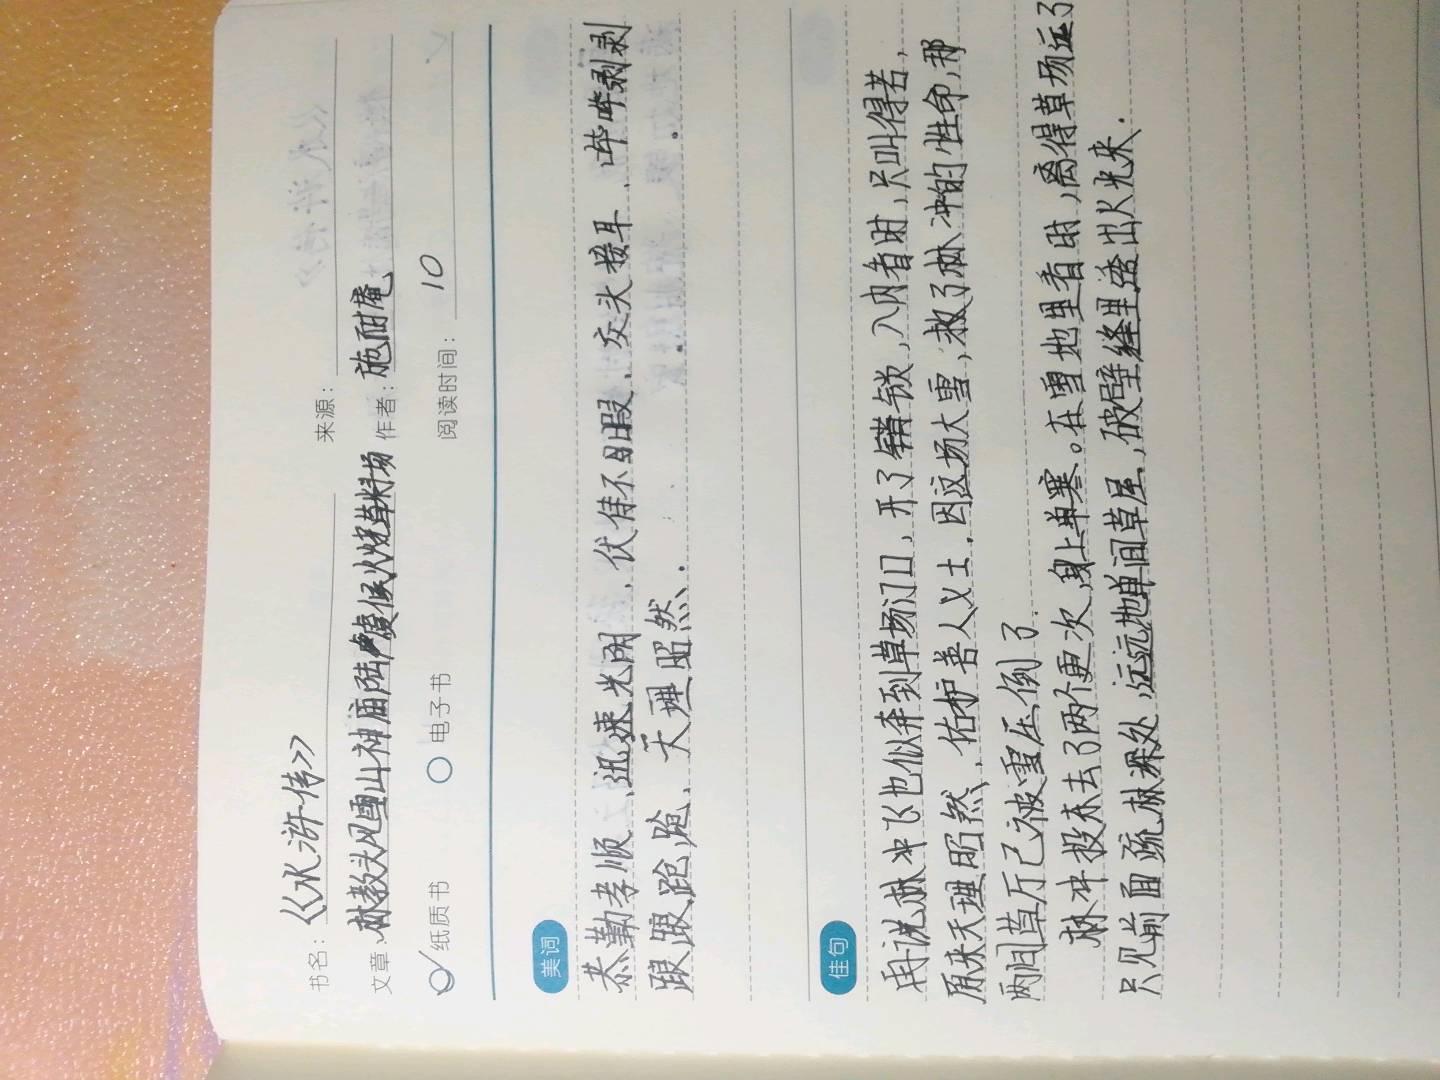 书名：《水浒传》 来源：
文章：林教头风雪山神庙陆虞候火烧草料场 作者：施耐庵
纸质书 电子书 阅读时间：10
美词
恭勤孝顺、迅速光阴、伏侍不暇、交头接耳、哔哔剥剥
踉踉跄跄、天理昭然、
佳句
再说林冲飞也似奔到草场门口，开了锁，入内看时，只叫得苦，
原来天理昭然，佑护善人义士，因这场大雪，救了林冲的性命，那
两间草厅已被雪压倒了．
林冲投东去了两个更次，身上单寒。在雪地里看时，离得草场远了
只见前面疏林深处，远远地单间草屋，破壁缝里透出火光来．